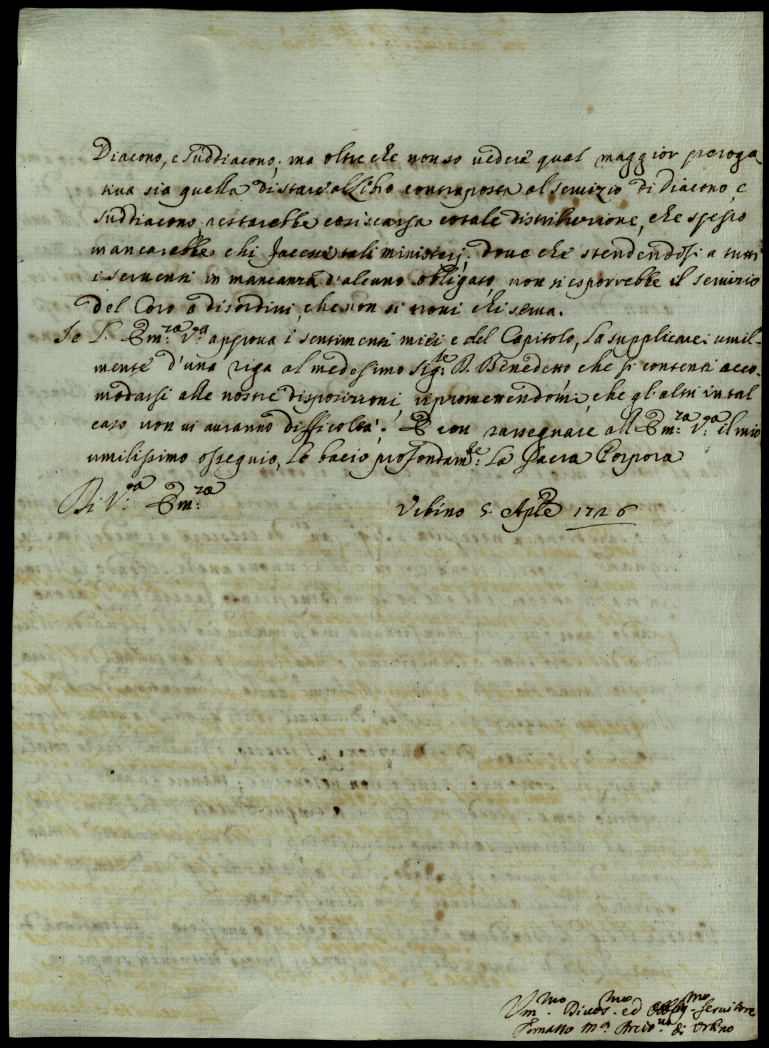 Diacono, e Suddiacono; ma oltre che non so vedere qual maggior preroga
tiva sia quella di stare al Libro contraposta al servizio di Diacono, e
Suddiacono, restarebbe così scarsa cotale distribuzione, che spesso
mancarebbe chi facesse tali ministerj; dove che stendendosi a tutti
i serventi in mancanza d'alcuno obligato, non si esporrebbe il servizio
del Coro a disordini, che non si trovi chi serva.
Se l'Em.za V.ra approva i sentimenti miei e del Capitolo, la supplicarei umil-
mente d'una riga al medesimo Sig.re D. Benedetto che si contenti acco-
modarsi alle nostre disposizioni, ripromettendomi, che gl'altri in tal
caso non vi avranno difficoltà. E con rassegnare all'Em.za V.ra il mio
umilissimo ossequio, le bacio profondam.te la Sacra Porpora
Di V.ra Em.za
Urbino 5 Aple 1726
Um.mo Divot.mo ed Obblig.mo Servitore
Tomasso M.a Arciv.o di Urbino